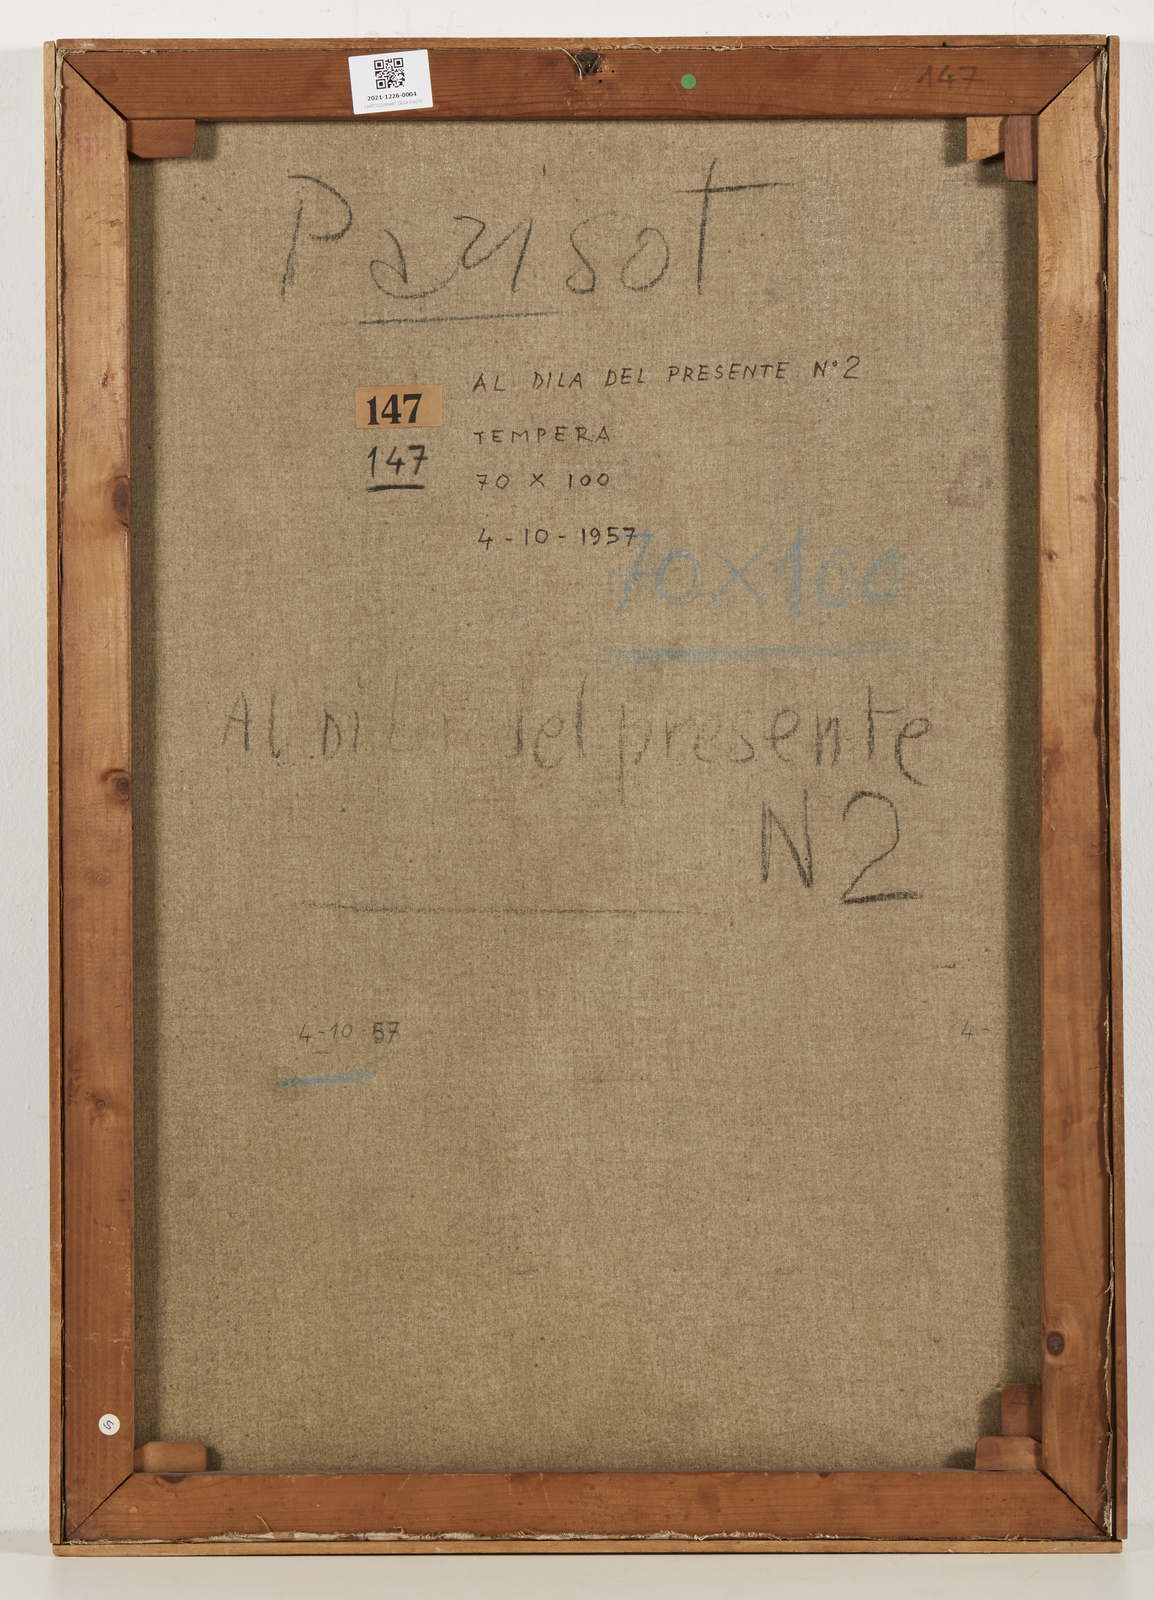 2021-1226-0004
147
Parisot
AL DILA DEL PRESENTE N° 2
147
TEMPERA
147
70 X 100
4-10-1957
70x100
Al DiLà del presente
N 2
4-10 57
4-